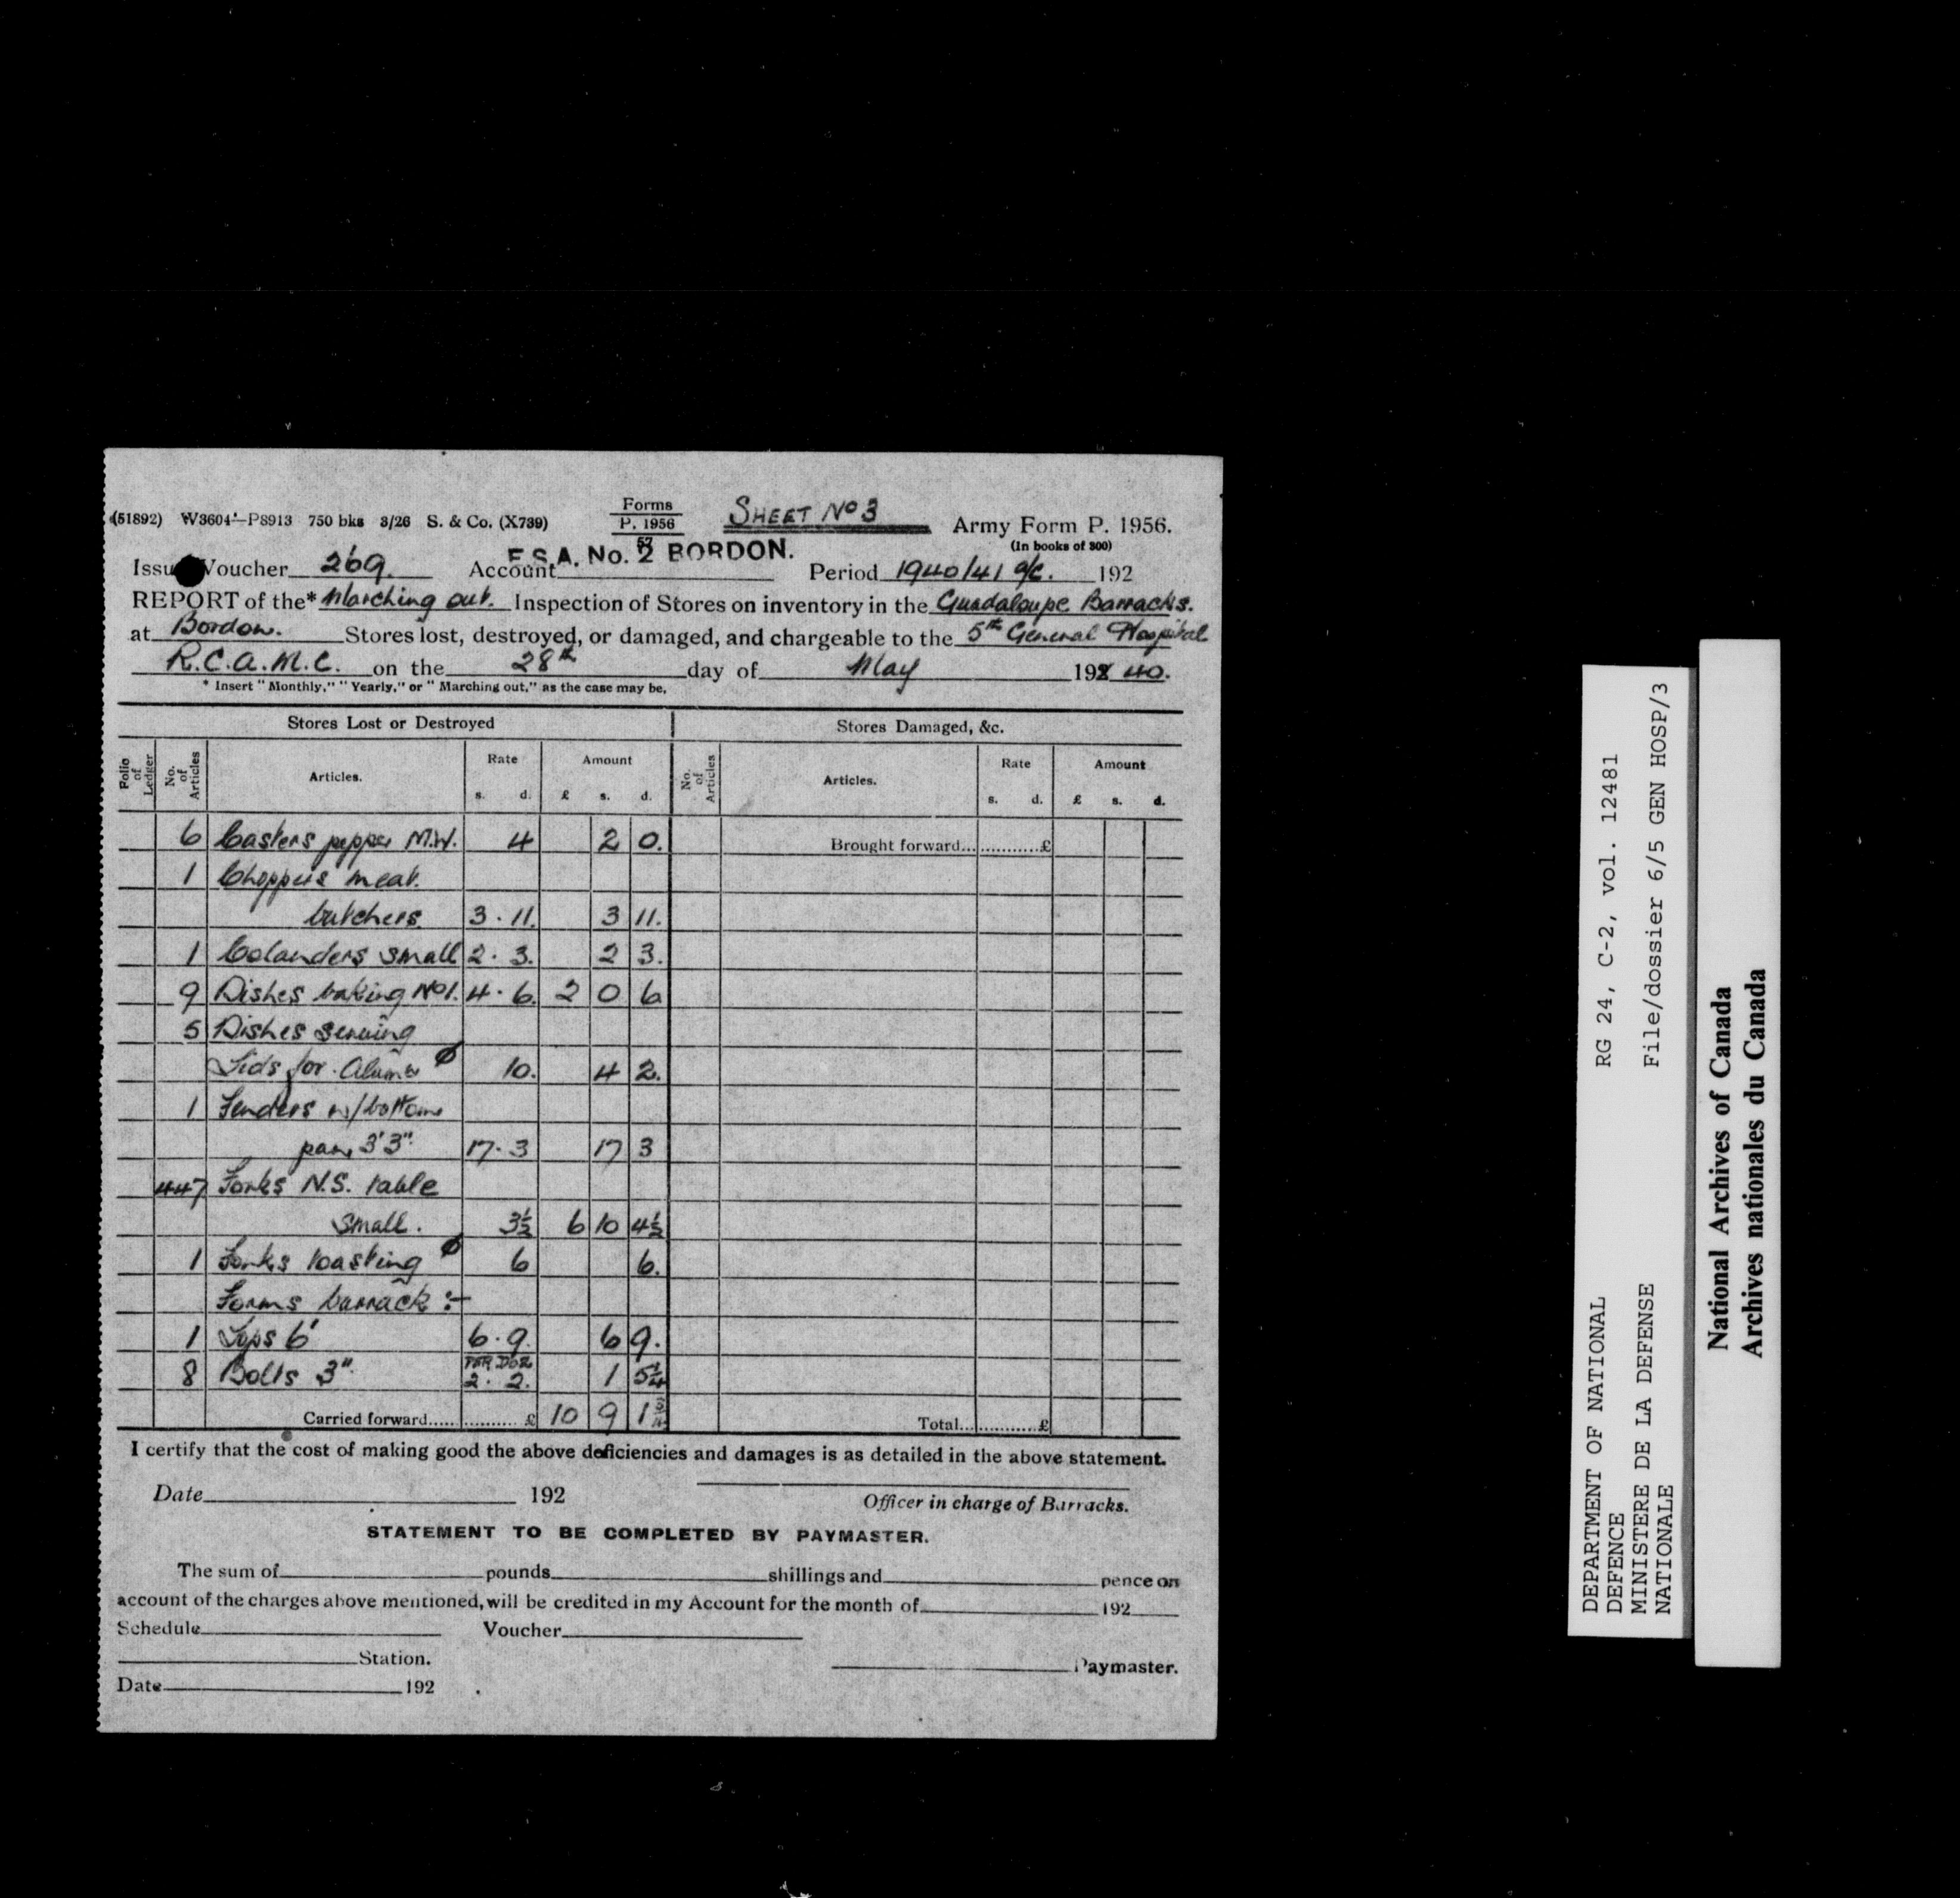 (51892) W3604—P8913 750 bks 3/26 S. & Co. (X739) Forms P. 1956 57 SHEET No 3 Army Form P. 1956.
(In books of 300)
F.S.A. No. 2 BORDON.
Issue Voucher 269. Account Period 1940/41 a/c. 192
REPORT of the* Marching out. Inspection of Stores on inventory in the Guadaloupe Barracks.
at Bordon. Stores lost, destroyed, or damaged, and chargeable to the 5th General Hospital
R.C.A.M.C. on the 28th day of May 192 40.
* Insert "Monthly," "Yearly," or "Marching out," as the case may be.
Stores Lost or Destroyed Stores Damaged, &c.
Folio of Ledger No. of Articles Articles. Rate s. d. Amount £ s. d. No. of Articles Articles. Rate s. d. Amount £ s. d.
6 Casters pepper M.W. 4 2 0. Brought forward... £
1 Choppers meat.
butchers. 3. 11. 3 11.
1 Colanders small 2. 3. 2 3.
9 Dishes baking No 1. 4. 6. 2 0 6
5 Dishes serving
Lids for 10. 4 2.
1 Fenders w/bottom
pan 3' 3" 17. 3 17 3
447 Forks N.S. table
small. 3½ 6 10 4½
1 Forks toasting 6 6.
Forms barrack :-
1 Tops 6' 6. 9. 6 9.
8 Bolts 3" PER DOZ 2. 2. 1 5¼
Carried forward...... £ 10 9 1 Total... £
I certify that the cost of making good the above deficiencies and damages is as detailed in the above statement.
Date 192
Officer in charge of Barracks.
STATEMENT TO BE COMPLETED BY PAYMASTER.
The sum of pounds shillings and pence on
account of the charges above mentioned, will be credited in my Account for the month of 192
Schedule Voucher
Station.
Paymaster.
Date 192
DEPARTMENT OF NATIONAL RG 24, C-2, vol. 12481
DEFENCE
MINISTERE DE LA DEFENSE File/dossier 6/5 GEN HOSP/3
NATIONALE
National Archives of Canada
Archives nationales du Canada